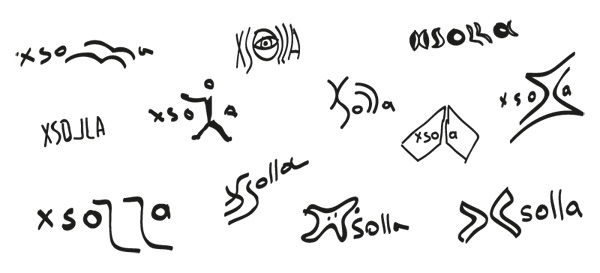 xso a
XSOLLA
xsolla
XSOLLA
xso a
xsolla
xso a
xso a
xsolla
xsolla
xsolla
xsolla